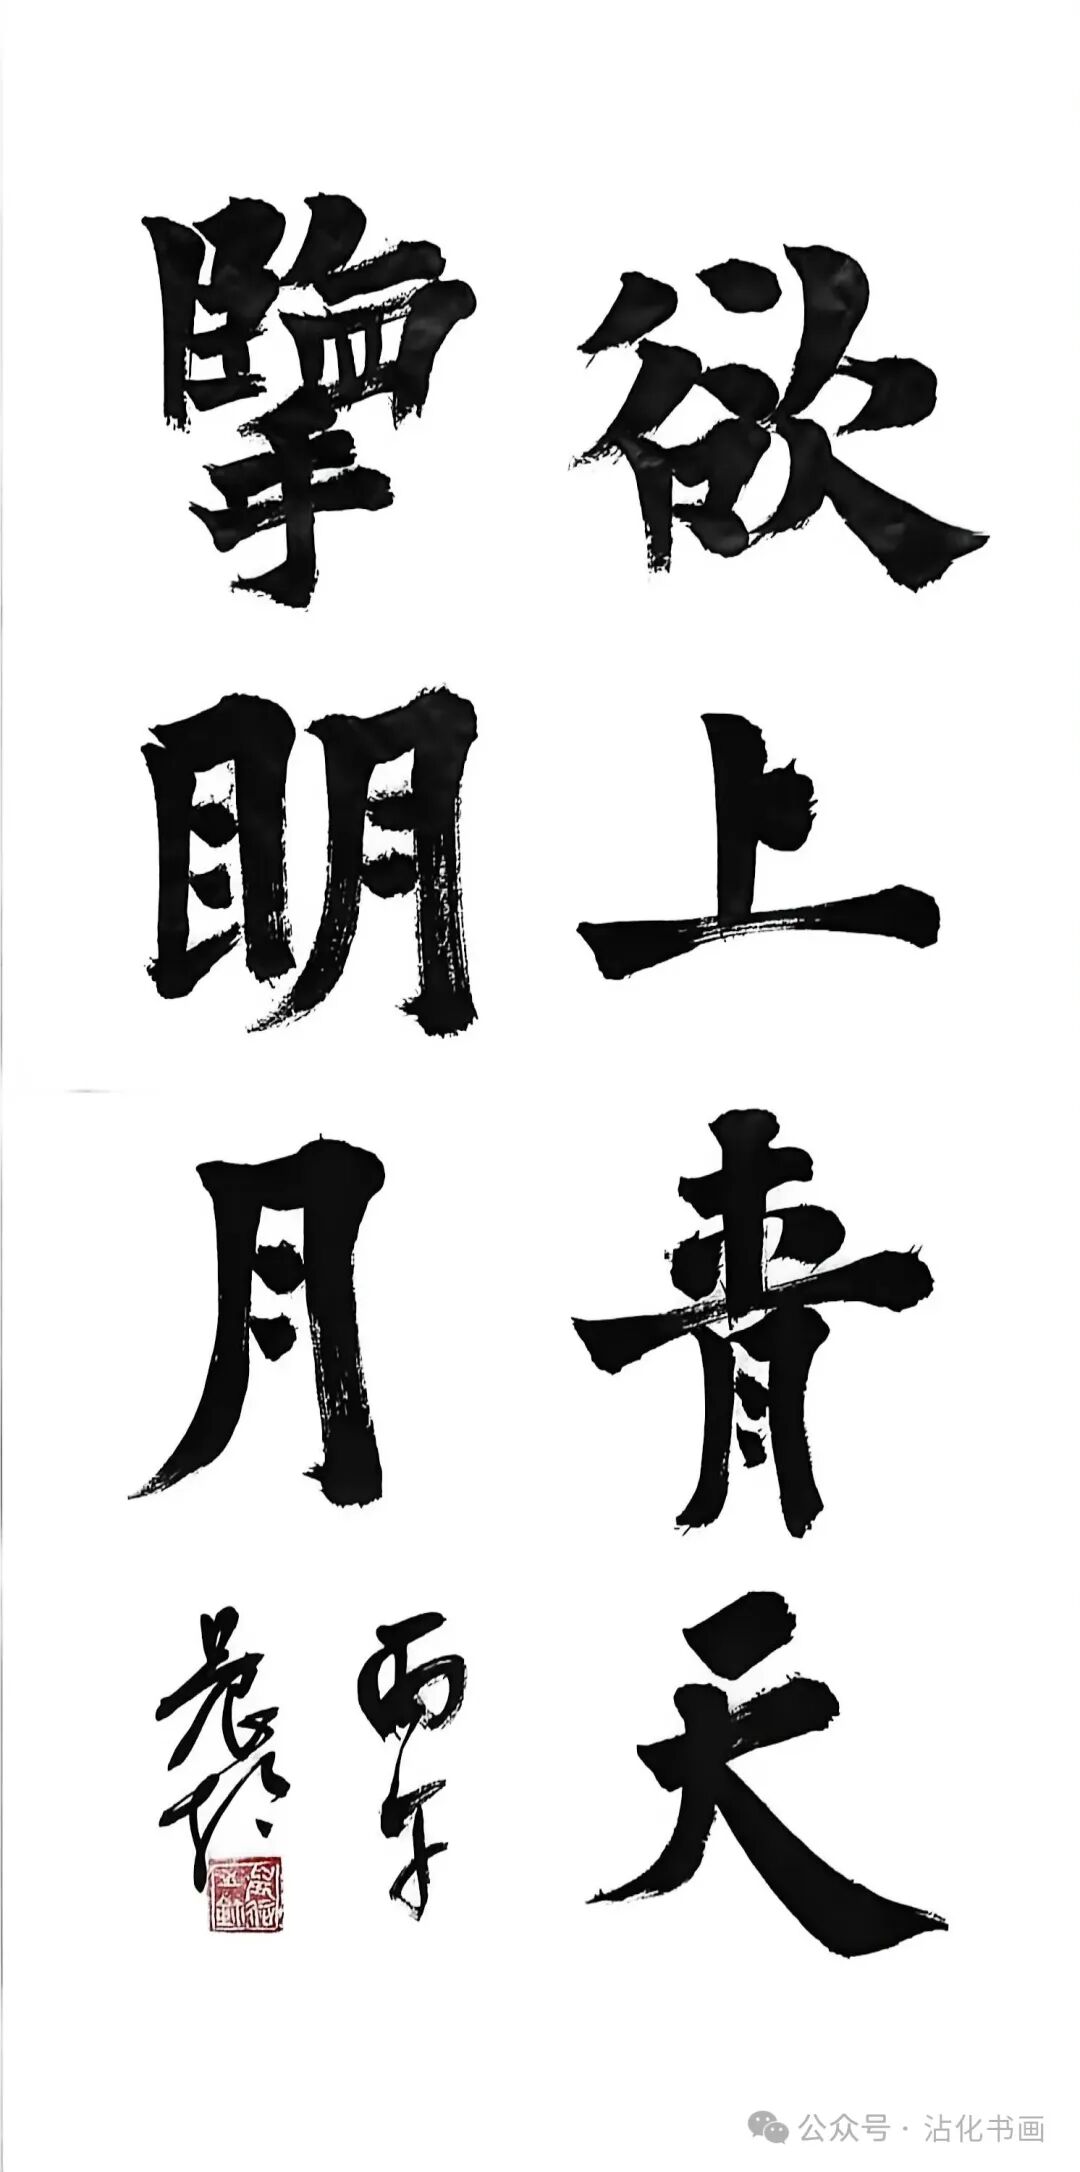 欲上青天
擥眀月
丙午
公众号·沾化书画